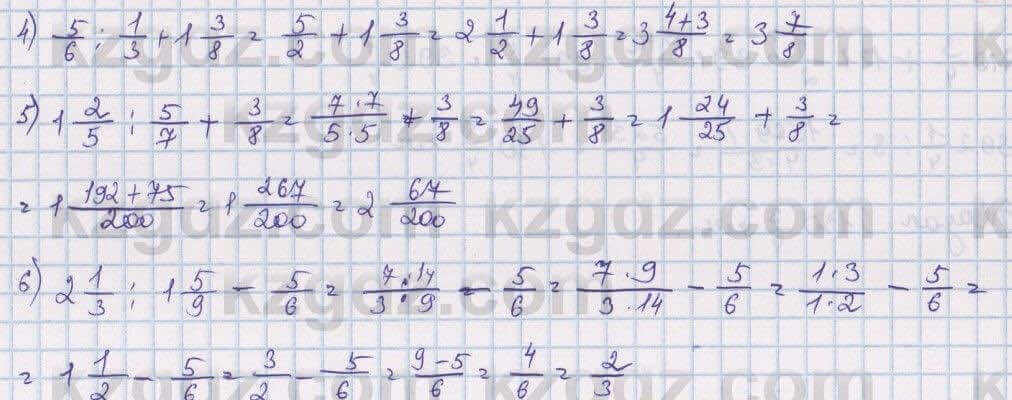 4) 5/6 : 1/3 + 1 3/8 = 5/2 + 1 3/8 = 2 1/2 + 1 3/8 = 3 (4+3)/8 = 3 7/8
5) 1 2/5 : 5/7 + 3/8 = (7·7)/(5·5) + 3/8 = 49/25 + 3/8 = 1 24/25 + 3/8 =
= 1 (192+75)/200 = 1 267/200 = 2 67/200
6) 2 1/3 : 1 5/9 - 5/6 = 7/3 : 14/9 - 5/6 = (7·9)/(3·14) - 5/6 = (1·3)/(1·2) - 5/6 =
= 1 1/2 - 5/6 = 3/2 - 5/6 = (9-5)/6 = 4/6 = 2/3
kzgdz.com